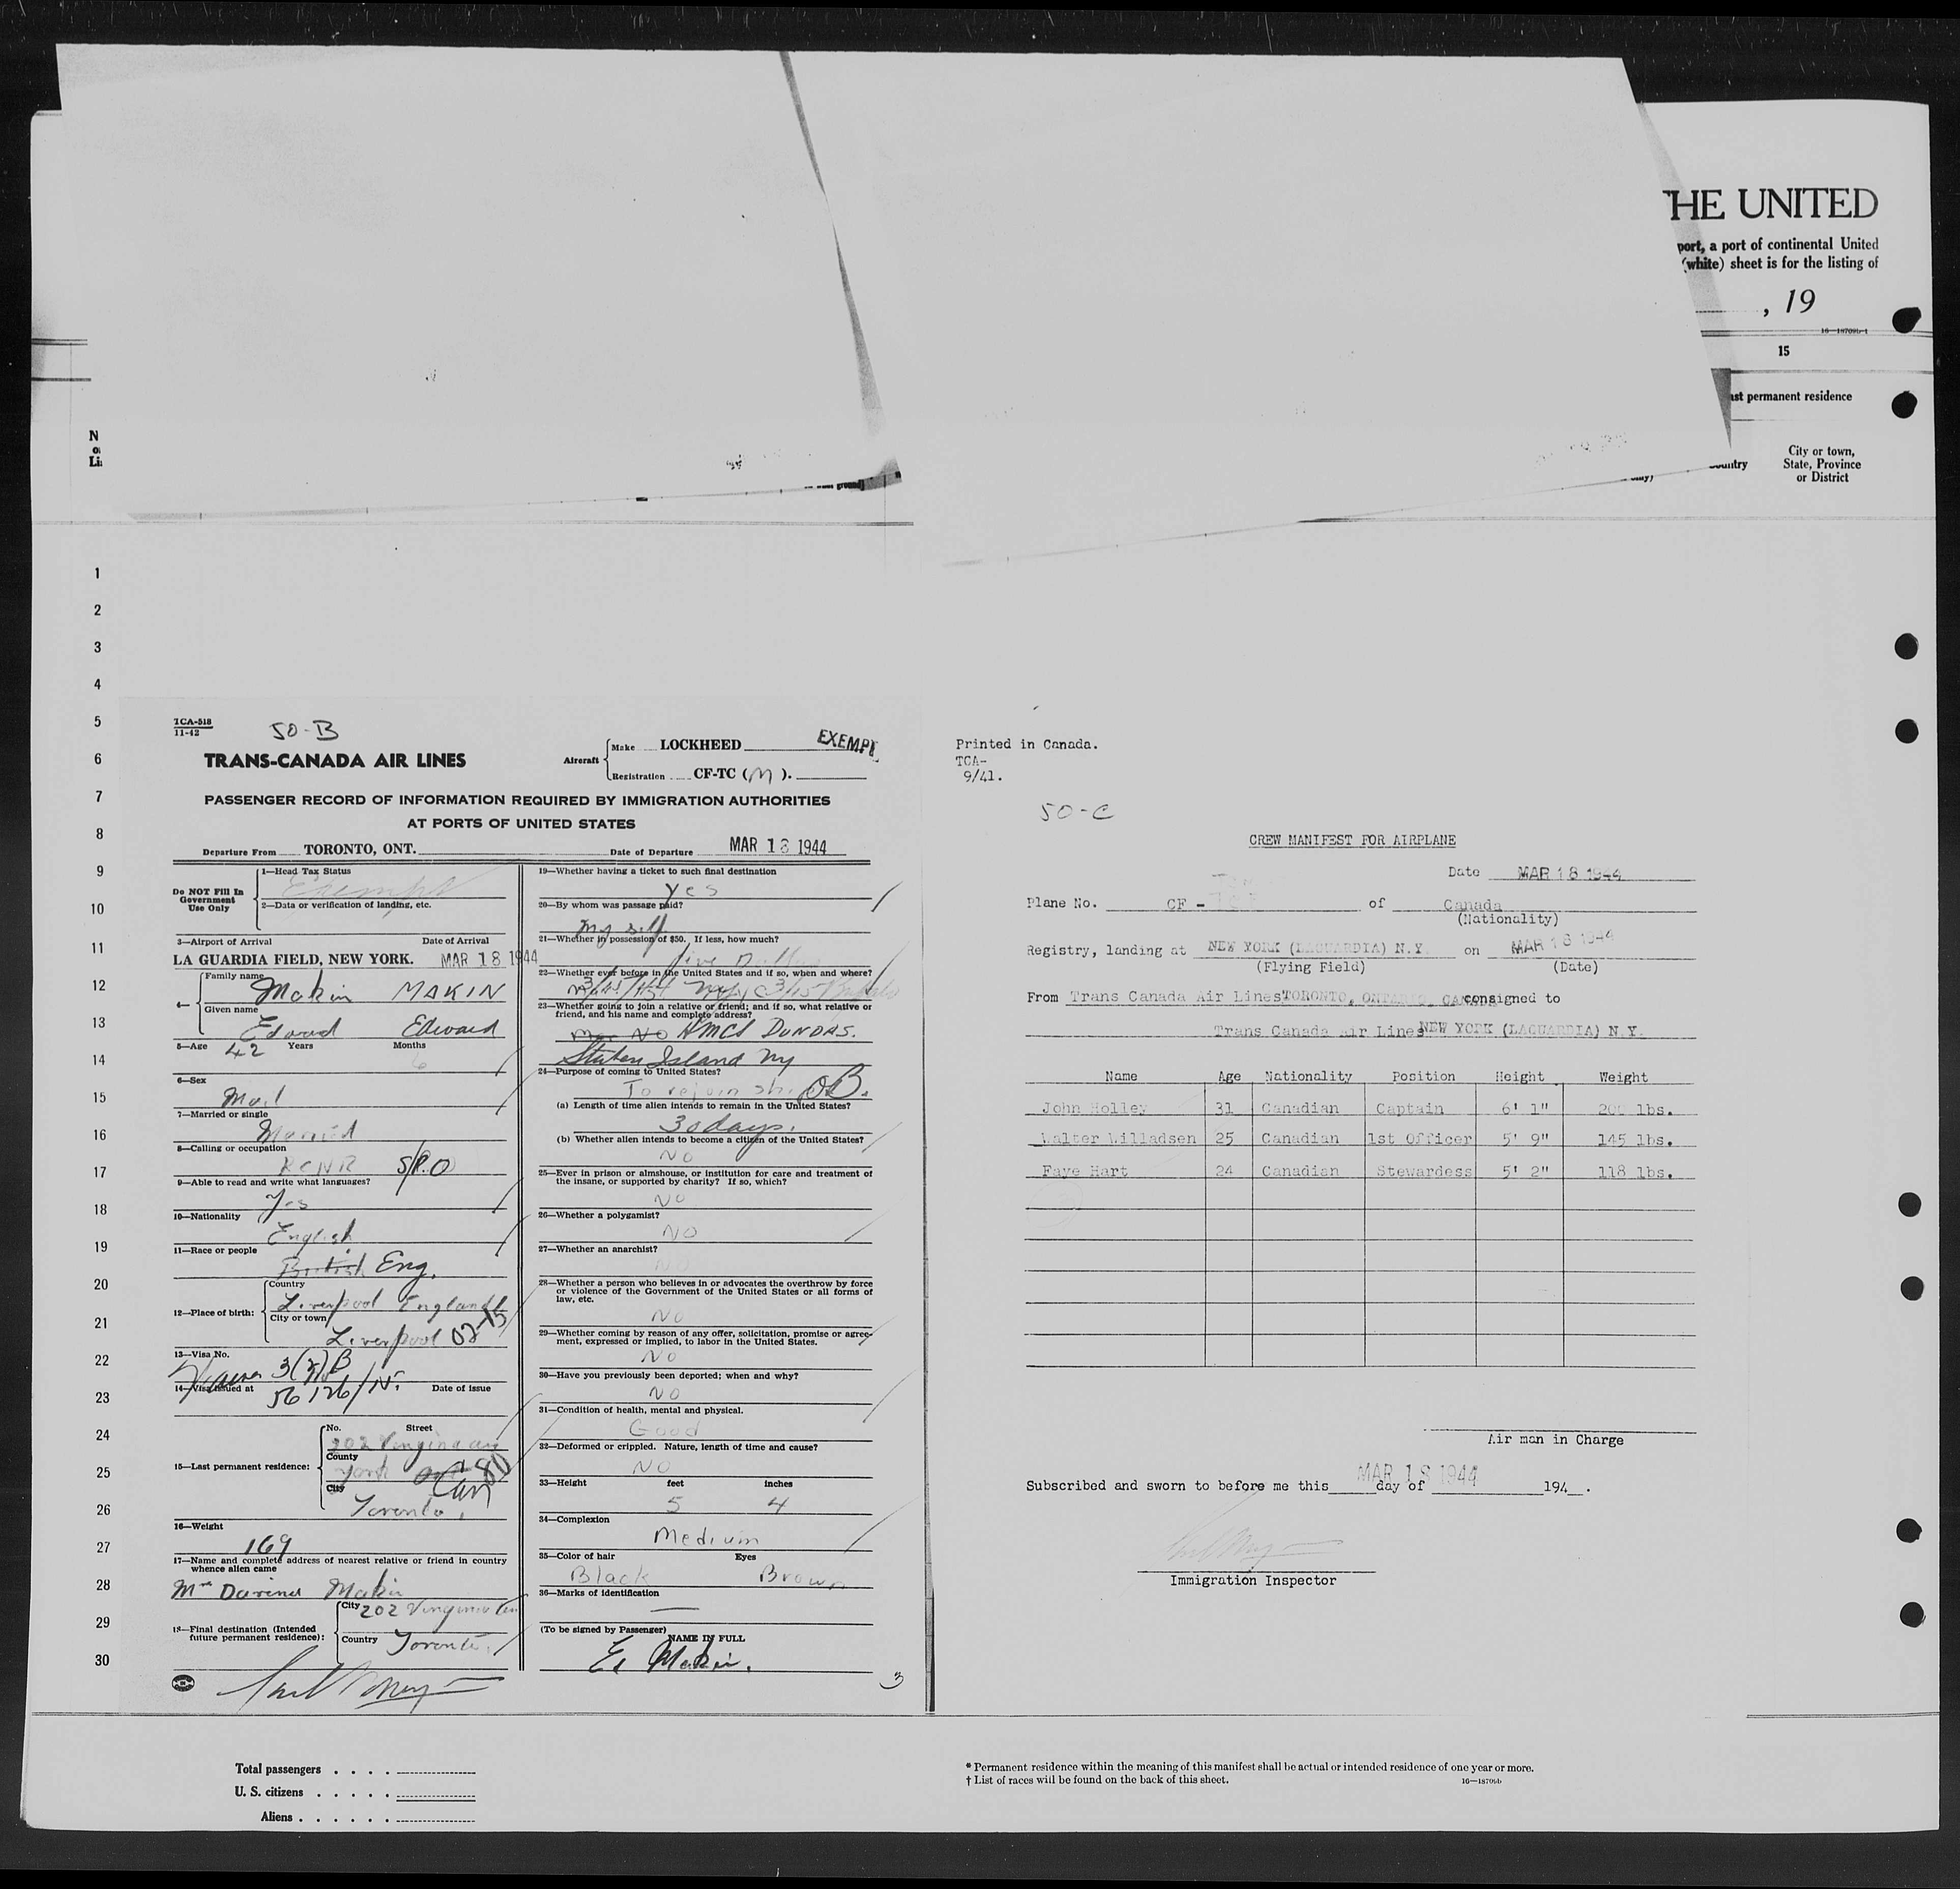 THE UNITED
port, a port of continental United
(white) sheet is for the listing of
, 19
16—18709b-1
15
ast permanent residence
City or town,
State, Province
or District
N
Li
1
2
3
4
5
6
7
8
9
10
11
12
13
14
15
16
17
18
19
20
21
22
23
24
25
26
27
28
29
30
TCA-518
11-42
50-B
TRANS-CANADA AIR LINES
Aircraft
Make LOCKHEED
EXEMPT
Registration CF-TC (M).
PASSENGER RECORD OF INFORMATION REQUIRED BY IMMIGRATION AUTHORITIES
AT PORTS OF UNITED STATES
Departure From TORONTO, ONT.
Date of Departure MAR 18 1944
Do NOT Fill In Government Use Only
1—Head Tax Status
Exempt
2—Data or verification of landing, etc.
3—Airport of Arrival Date of Arrival
LA GUARDIA FIELD, NEW YORK. MAR 18 1944
4—
Family name
Makin MAKIN
Given name
Edward Edward
5—Age 42 Years Months 6
6—Sex
Mail
7—Married or single
Married
8—Calling or occupation
RCNR S/P.O
9—Able to read and write what languages?
Yes
10—Nationality
English
11—Race or people
British Eng.
12—Place of birth:
Country
Liverpool England
City or town
Liverpool 02-15
13—Visa No.
3(7)B
14—Visa issued at Date of issue
56126/N.
15—Last permanent residence:
No. Street
202 Virginia av
County
York Ont Can 80
City
Toronto.
16—Weight
169
17—Name and complete address of nearest relative or friend in country
whence alien came
Mrs Makin
18—Final destination (Intended
future permanent residence):
City 202 Virginia
Country Toronto.
19—Whether having a ticket to such final destination
yes
20—By whom was passage paid?
My self
21—Whether in possession of $50. If less, how much?
22—Whether ever before in the United States and if so, when and where?
23—Whether going to join a relative or friend; and if so, what relative or
friend, and his name and complete address?
No HMCS DUNDAS.
Staten Island Ny
24—Purpose of coming to United States?
To rejoin ship OB.
(a) Length of time alien intends to remain in the United States?
30 days.
(b) Whether alien intends to become a citizen of the United States?
No
25—Ever in prison or almshouse, or institution for care and treatment of
the insane, or supported by charity? If so, which?
No
26—Whether a polygamist?
No
27—Whether an anarchist?
No
28—Whether a person who believes in or advocates the overthrow by force
or violence of the Government of the United States or all forms of
law, etc.
No
29—Whether coming by reason of any offer, solicitation, promise or agree-
ment, expressed or implied, to labor in the United States.
No
30—Have you previously been deported; when and why?
No
31—Condition of health, mental and physical.
Good
32—Deformed or crippled. Nature, length of time and cause?
No
33—Height feet inches
5 4
34—Complexion
Medium
35—Color of hair Eyes
Black Brown
36—Marks of identification
—
(To be signed by Passenger)
NAME IN FULL
Ed Makin.
3
Printed in Canada.
TCA-
9/41.
50-C
CREW MANIFEST FOR AIRPLANE
Date MAR 18 1944
Plane No. CF - of Canada
(Nationality)
Registry, landing at NEW YORK (LAGUARDIA) N.Y. on MAR 18 1944
(Flying Field) (Date)
From Trans Canada Air Lines TORONTO, ONTARIO, CANADA consigned to
Trans Canada Air Lines NEW YORK (LAGUARDIA) N.Y.
Name Age Nationality Position Height Weight
John Holley 31 Canadian Captain 6' 1" 200 lbs.
Walter Willadsen 25 Canadian 1st Officer 5' 9" 145 lbs.
Faye Hart 24 Canadian Stewardess 5' 2" 118 lbs.
Air man in Charge
Subscribed and sworn to before me this day of 194 .
MAR 18 1944
Immigration Inspector
Total passengers . . . .
U. S. citizens . . . . .
Aliens . . . . . .
* Permanent residence within the meaning of this manifest shall be actual or intended residence of one year or more.
† List of races will be found on the back of this sheet.
16—18709b